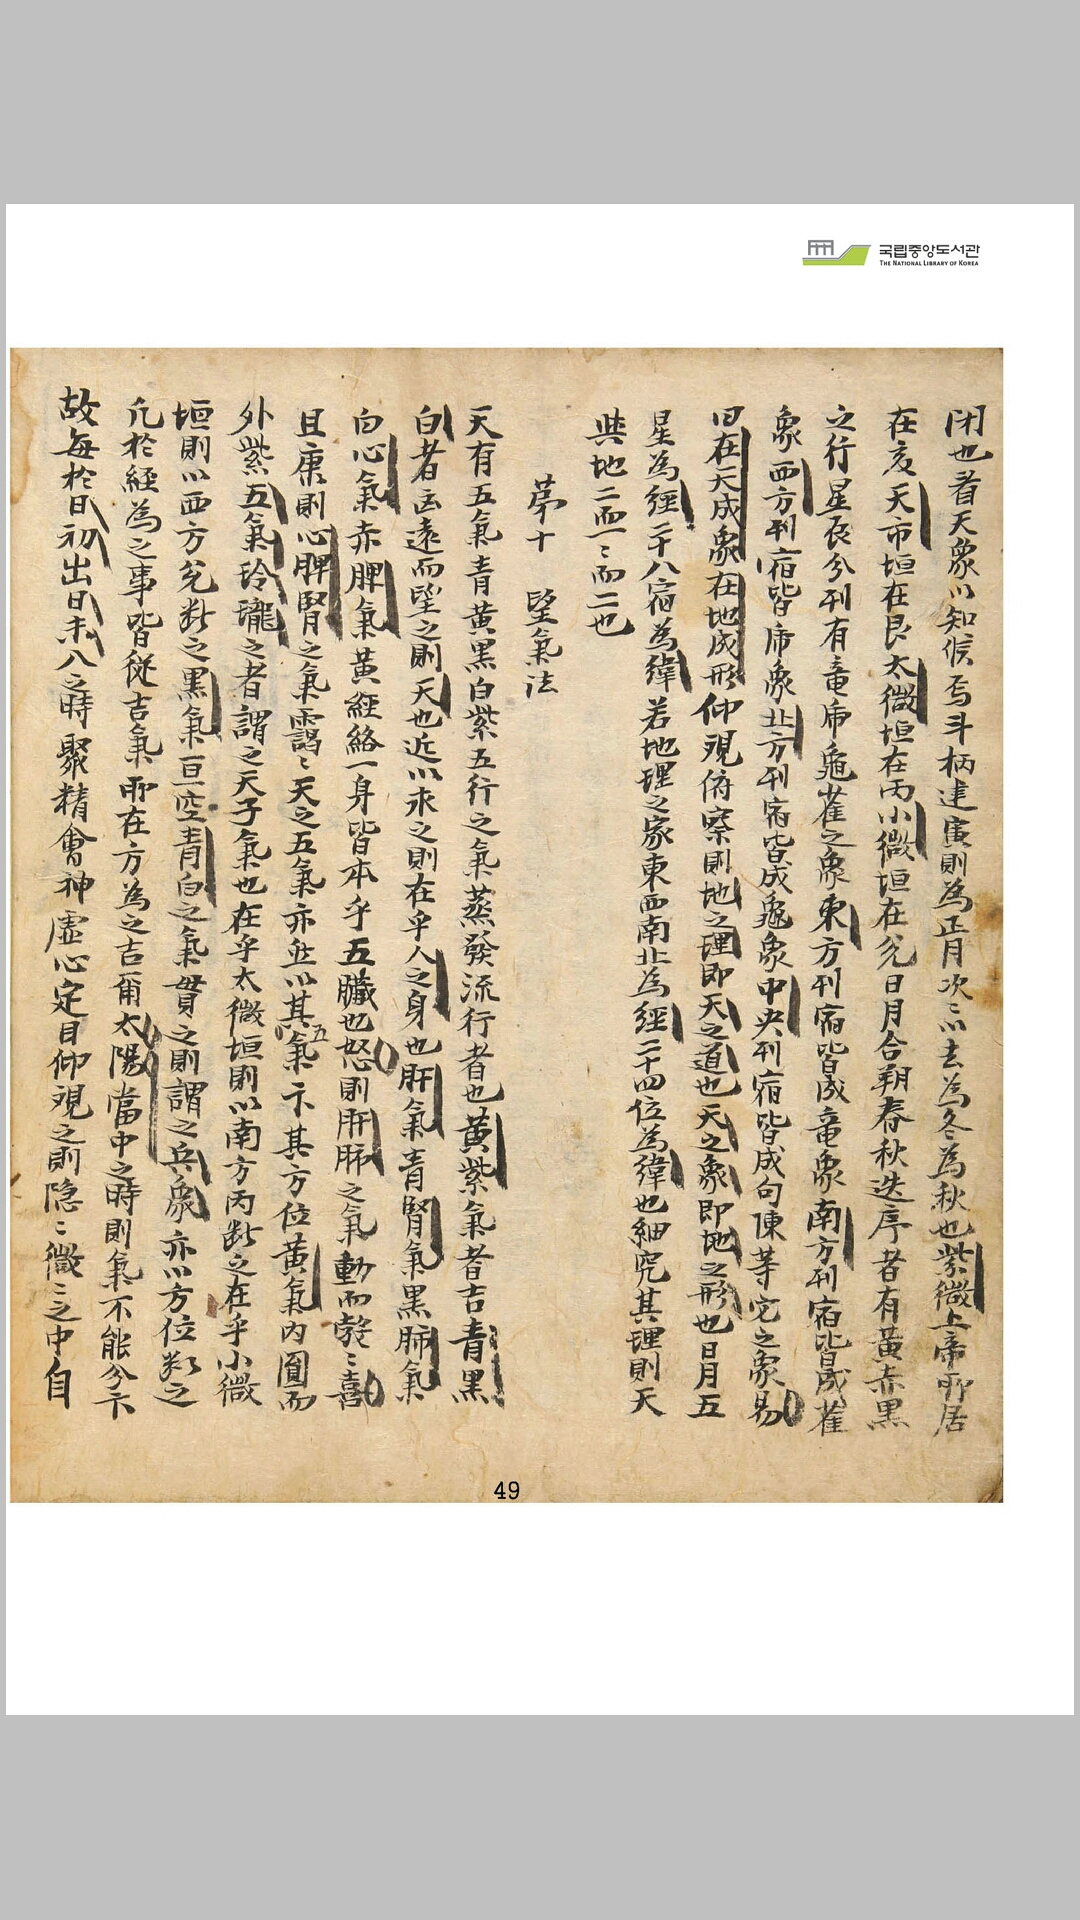 국립중앙도서관
THE NATIONAL LIBRARY OF KOREA
閉也看天象以知候焉斗柄建寅則為正月次〻以去為冬為秋也紫微上帝所居
在亥天市垣在艮太微垣在丙小微垣在兌日月合朔春秋迭序者有黃赤黑
之行星辰分列有竜帍龜雀之象東方列宿皆成竜象南方列宿皆成雀
象西方列宿皆帍象北方列宿皆成龜象中央列宿皆成句陳等宅之象易
曰在天成象在地成形仰視俯察則地之理即天之道也天之象即地之形也日月五
星為經二十八宿為緯若地理之家東西南北為經二十四位為緯也細究其理則天
與地二而一〻而二也
苐十 望氣法
天有五氣青黃黑白紫五行之氣蒸發流行者也黃紫氣者吉青黑
白者凶遠而望之則天也近以求之則在乎人之身也肝氣青腎氣黑肺氣
白心氣赤脾氣黃經絡一身皆本乎五臟也怒則肝肺之氣動而發〻喜
且康則心脾腎之氣靄〻天之五氣亦然以其五氣卞其方位黃氣內圓而
外紫五氣玲瓏之者謂之天子氣也在乎太微垣則以南方丙斷之在乎小微
垣則以西方兌斷之黑氣亘空青白之氣貫之則謂之兵象亦以方位斷之
凡於經為之事皆從吉氣所在方為之吉爾太陽當中之時則氣不能分卞
故每於日初出日未入之時聚精會神虛心定目仰視之則隐〻微〻之中自
49